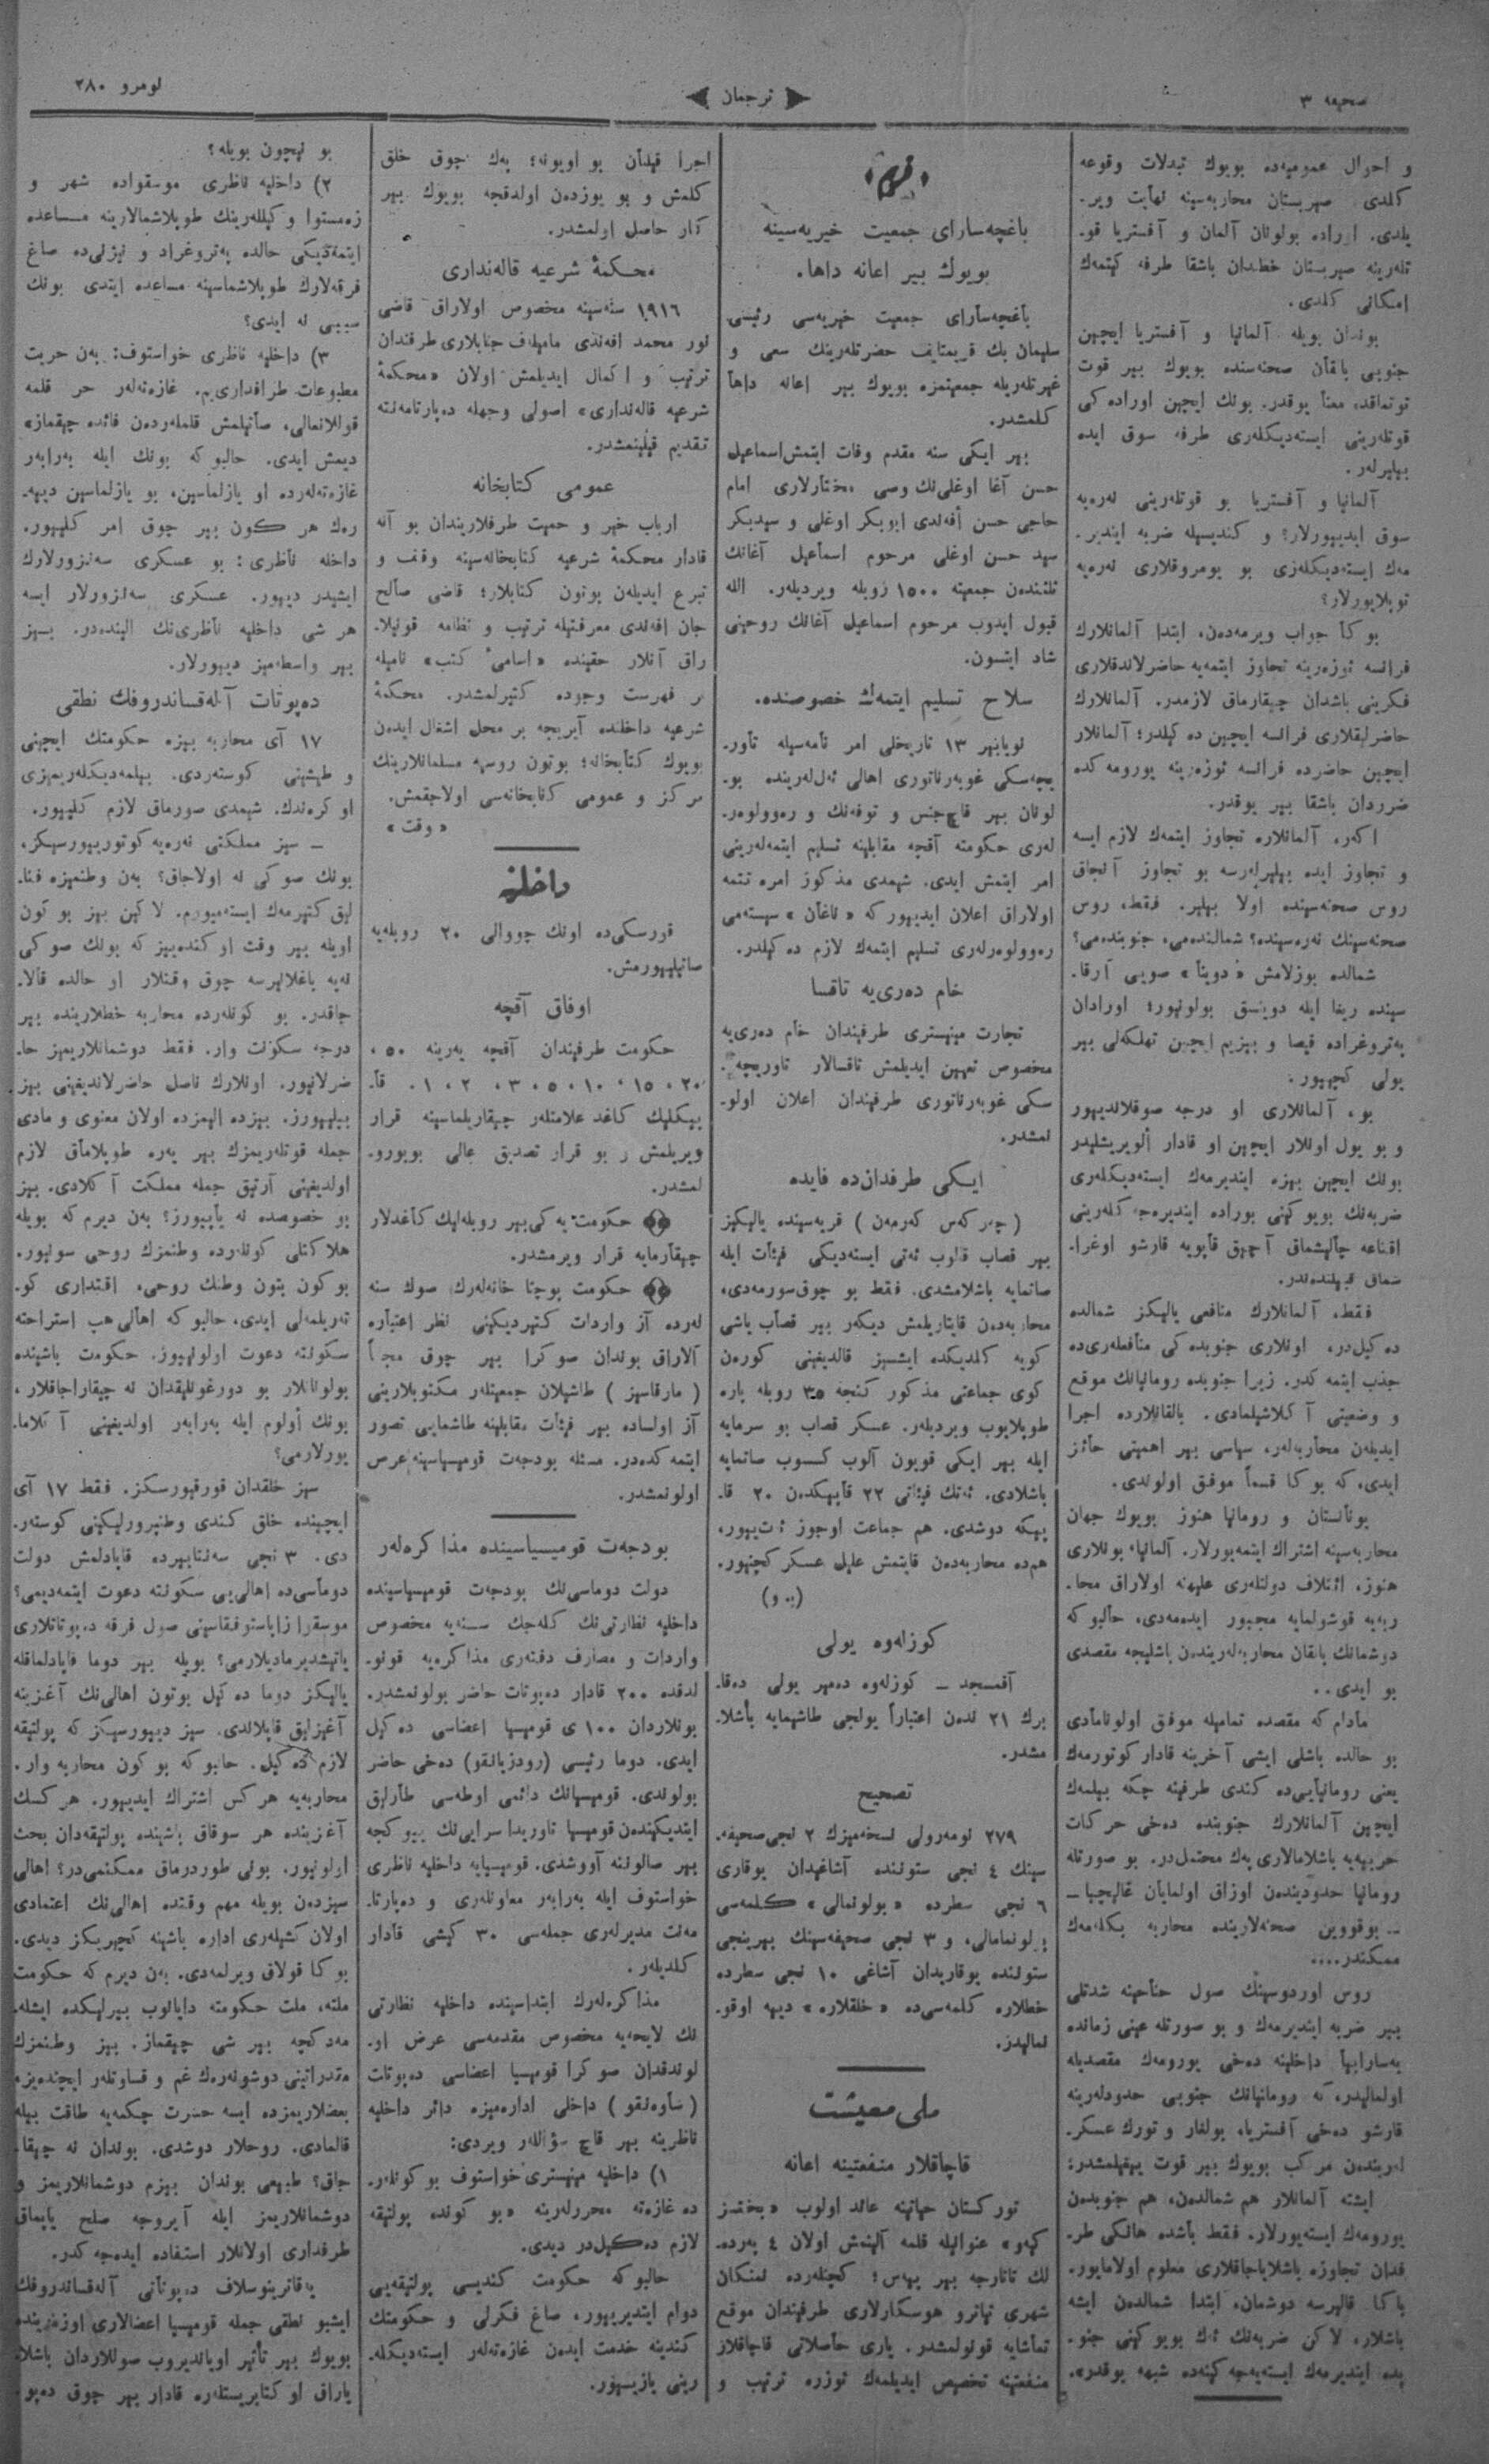 صحیفه ٣
ترجمان
نومرو ٢٨٠
و احوال عمومیه‌ده بویوك تبدلات وقوعه
كلدی. صربستان محاربه‌سینه نهایت ویر-
یلدی. اوراده بولونان آلمان و آفستریا قو-
تله‌رینه صربستان خطدان باشقا طرفه كیتمه‌ك
امكانی كلدی.
بوندان بویله آلمانیا و آفستریا ایچین
جنوبی بالقان صحنه‌سنده بویوك بیر قوت
توتماقده معنا یوقدر. بونك ایچین اوراده كی
قوتله‌رینی ایسته‌دیكله‌ری طرفه سوق ایده
بیلیرله‌ر.
آلمانیا و آفستریا بو قوتله‌رینی نه‌ره‌یه
سوق ایدییورلار؟ و كندیسیله ضربه ایندیر-
مه‌ك ایسته‌دیكله‌ری بو یومروقلاری نه‌ره‌یه
توپلایورلار؟
بو كا جواب ویرمه‌دن، ابتدا آلمانلارك
فرانسه ئوزه‌رینه تجاوز ایتمه‌یه حاضرلاندقلاری
فكرینی باشدان چیقارماق لازمدر. آلمانلارك
حاضرلیقلاری فرانسه ایچین ده كیلدر؛ آلمانلار
ایچین حاضرده فرانسه ئوزه‌رینه یورومه كده
ضرردان باشقا بیر یوقدر.
اكه‌ر، آلمانلاره تجاوز ایتمه‌ك لازم ایسه
و تجاوز ایده بیلیرله‌رسه بو تجاوز آنجاق
روس صحنه‌سینده اولا بیلیر. فقط، روس
صحنه‌سینك نه‌ره‌سینده؟ شمالنده‌می، جنوبنده‌می؟
شمالده بوزلامش «دوینا» صویی آرقا-
سینده ریغا ایله دوینسق بولونیور؛ اورادان
په‌تروغراده قیصا و بیزیم ایچین تهلكه‌لی بیر
یولی كچییور.
بو، آلمانلاری او درجه صوقلاندیییور
و بو یول اونلار ایچین او قادار ألویریشلیدر
بونك ایچین بیزه ایندیرمه‌ك ایسته‌دیكله‌ری
ضربه‌نك بویوكینی بوراده ایندیره‌جه كله‌رینی
اقناعه چالیشماق آچیق قاپویه قارشو اوغرا-
شماق قبیلنده‌ندر.
فقط، آلمانلارك منافعی یالیكز شمالده
ده كیل‌در، اونلاری جنوبده كی منافعله‌ری‌ده
جذب ایتمه كدر. زیرا جنوبده رومانیانك موقع
و وضعیتی آ كلاشیلمادی. بالقانلارده اجرا
ایدیله‌ن محاربه‌له‌ر، سیاسی بیر اهمیتی حائز
ایدی، كه بو كا قسماً موفق اولوندی.
یونانستان و رومانیا هنوز بویوك جهان
محاربه‌سینه اشتراك ایتمه‌یورلار. آلمانیا، بونلاری
هنوز، ائتلاف دولتله‌ری علیهنه اولاراق محا-
ربه‌یه قوشولمایه مجبور ایده‌مه‌دی، حالبو كه
دوشمانك بالقان محاربه‌له‌ریندن باشلیجه مقصدی
بو ایدی..
مادام كه مقصده تمامیله موفق اولونامادی
بو حالده باشلی ایشی آخرینه قادار كوتورمه‌ك
یعنی رومانیایی‌ده كندی طرفینه چكه بیلمه‌ك
ایچین آلمانلارك جنوبده ده‌خی حركات
حربیه‌یه باشلامالاری پك محتمل‌در. بو صورتله
رومانیا حدودیندن اوزاق اولمایان غالیچیا -
- بوقووین صحنه‌لارینده محاربه بكله‌مه‌ك
ممكندر....
روس اوردوسینك صول جناحینه شدتلی
بیر ضربه ایندیرمه‌ك و بو صورتله عینی زمانده
به‌سارابیا داخلینه ده‌خی یورومه‌ك مقصدیله
اولمالیدر، كه رومانیانك جنوبی حدودله‌رینه
قارشو ده‌خی آفستریا، بولغار و تورك عسكر-
له‌ریندن مركب بویوك بیر قوت ییغیلمشدر؛
ایشته آلمانلار هم شمالدن، هم جنوبدن
یورومه‌ك ایسته‌یورلار. فقط باشده هانكی طر-
فدان تجاوزه باشلایاجاقلاری معلوم اولامایور.
با كا قالیرسه دوشمان، ابتدا شمالدن ایشه
باشلار، لاكن ضربه‌نك اك بویوكینی جنو-
بده ایندیرمه‌ك ایسته‌یه‌جه كینه‌ده شبهه یوقدر.
قریم
باغچه‌سارای جمعیت خیریه‌سینه
بویوك بیر اعانه داها.
باغچه‌سارای جمعیت خیریه‌سی رئیسی
سلیمان بك قریمتایف حضرتله‌رینك سعی و
غیرتله‌ریله جمعیتمزه بویوك بیر اعانه داها
كلمشدر.
بیر ایكی سنه مقدم وفات ایتمش اسماعیل
حسن آغا اوغلی‌نك وصی مختارلاری امام
حاجی حسن أفه‌ندی ابوبكر اوغلی و سیدبكر
سید حسن اوغلی مرحوم اسماعیل آغانك
ثلثندن جمعیته ١٥٠٠ روبله ویردیله‌ر. الله
قبول ایدوب مرحوم اسماعیل آغانك روحینی
شاد ایتسون.
سلاح تسلیم ایتمه‌ك خصوصنده.
نویابیر ١٣ تاریخلی امر نامه‌سیله تاور-
یچه‌سكی غوبه‌رناتوری اهالی ئه‌ل‌له‌رینده بو-
لونان بیر قاچ جنس و توفه‌نك و ره‌وولوه‌ر-
له‌ری حكومته آقچه مقابلینه تسلیم ایتمه‌له‌رینی
امر ایتمش ایدی. شیمدی مذكور امره تتمه
اولاراق اعلان ایدییور كه «ناغان» سیسته‌می
ره‌وولوه‌رله‌ری تسلیم ایتمه‌ك لازم ده كیلدر.
خام ده‌ری‌یه تاقسا
تجارت مینیستری طرفیندان خام ده‌ری‌یه
مخصوص تعیین ایدیلمش تاقسالار تاوریچه-
سكی غوبه‌رناتوری طرفیندان اعلان اولو-
نمشدر.
ایكی طرفدان‌ده فایده
(چه‌ركه‌س كه‌رمه‌ن) قریه‌سینده یالیكز
بیر قصاب قالوب ئه‌تی ایسته‌دیكی فیئات ایله
صاتمایه باشلامشدی. فقط بو چوق سورمه‌دی،
محاربه‌دن قایتاریلمش دیكه‌ر بیر قصاب یاشی
كویه كلمدیكده ایشسیز قالدیغینی كوره‌ن
كوی جماعتی مذكور كنجه ٣٥ روبله پاره
طوپلایوب ویردیله‌ر. عسكر قصاب بو سرمایه
ایله بیر ایكی قویون آلوب كسوب صاتمایه
باشلادی. ئه‌تك فیئاتی ٢٢ قاپیكدن ٢٠ قا-
پیكه دوشدی. هم جماعت اوجوز ئه‌ت ییور،
هم‌ده محاربه‌دن قایتمش علیل عسكر كچنیور.
(ب. و)
كوزله‌وه یولی
آقمسجد - كوزله‌وه ده‌میر یولی ده‌قا-
برك ٢١ ندن اعتباراً یولجی طاشیمایه باشلا-
مشدر.
تصحیح
٢٧٩ نومه‌رولی نسخه‌میزك ٢ نجی صحیفه-
سینك ٤ نجی ستوننده آشاغیدان یوقاری
٦ نجی سطرده «بولونمالی» كلمه‌سی
بولونمامالی، و ٣ نجی صحیفه‌سینك بیرینجی
ستوننده یوقاریدان آشاغی ١٠ نجی سطرده
خطلاره كلمه‌سی‌ده «خلقلاره» دییه اوقو-
نمالیدز.
ملی معیشت
قاچاقلار منفعتینه اعانه
توركستان حیاتینه عائد اولوب «بختسز
كیه‌و» عنوانیله قلمه آلینمش اولان ٤ په‌رده-
لك تاتارجه بیر پیه‌س؛ كچنله‌رده نمنكان
شهری تیاترو هوسكارلاری طرفیندان موقع
تماشایه قونولمشدر. یاری حاصلاتی قاچاقلار
منفعتینه تخصیص ایدیلمه‌ك ئوزره ترتیب و
اجرا قیلنان بو اویونه؛ پك چوق خلق
كلمش و یو یوزدن اولدقجه بویوك بیر
كار حاصل اولمشدر.
محكمهٔ شرعیه قاله‌نداری
١٩١٦ سنه‌سینه مخصوص اولاراق قاضی
نور محمد افه‌ندی مامیلاف جنابلاری طرفندان
ترتیب و اكمال ایدیلمش اولان «محكمهٔ
شرعیه قاله‌نداری» اصولی وجهله ده‌پارتامه‌نته
تقدیم قیلینمشدر.
عمومی كتابخانه
ارباب خیر و حمیت طرفلاریندان بو آنه
قادار محكمهٔ شرعیه كتابخانه‌سینه وقف و
تبرع ایدیله‌ن بوتون كتابلار؛ قاضی صالح
جان افه‌ندی معرفتیله ترتیب و نظامه قونیلا-
راق آنلار حقینده «اسامیٔ كتب» نامیله
بر فهرست وجوده كتیرلمشدر. محكمهٔ
شرعیه داخلنده آیریجه بر محل اشغال ایدن
بویوك كتابخانه؛ بوتون روسیه مسلمانلارینك
مركز و عمومی كتابخانه‌سی اولاجقمش.
«وقت»
داخلیه
قورسكی‌ده اونك چووالی ٢٠ روبله‌یه
صاتیلییورمش.
اوفاق آقچه
حكومت طرفیندان آقچه یه‌رینه ٥٠،
٢٠، ١٥، ١٠، ٥، ٣، ٢، ١، قا-
پیكلیك كاغد علامتله‌ر چیقاریلماسینه قرار
ویریلمش و بو قرار تصدیق عالی بویورو-
لمشدر.
حكومت یه‌كی بیر روبله‌لیك كاغدلار
چیقارمایه قرار ویرمشدر.
حكومت پوچتا خانه‌له‌رك صوك سنه
له‌رده آز واردات كتیردیكینی نظر اعتباره
آلاراق بوندان صوكرا بیر چوق مجاناً
(مارقاسیز) طاشیلان جمعیتله‌ر مكتوبلارینی
آز اولساده بیر فیئات مقابلینه طاشمایی تصور
ایتمه كده‌در. مسئله بودجه‌ت قومیسیاسینه عرض
اولونمشدر.
بودجه‌ت قومیسیاسینده مذاكره‌له‌ر
دولت دوماسی‌نك بودجه‌ت قومیسیاسینده
داخلیه نظارتی‌نك كله‌جك سنه‌یه مخصوص
واردات و مصارف دفته‌ری مذاكره‌یه قونو-
لدقده ٢٠٠ قادار ده‌پوتات حاضر بولونمشدر.
بونلاردان ١٠٠ ی قومیسیا اعضاسی ده كیل
ایدی. دوما رئیسی (رودزیانقو) ده‌خی حاضر
بولوندی. قومیسیانك دائمی اوطه‌سی طارلیق
ایتدیكیندن قومیسیا تاوریدا سرایی‌نك بیوكجه
بیر صالونه آووشدی. قومیسیایه داخلیه ناظری
خواستوف ایله به‌رابه‌ر معاونله‌ری و ده‌پارتا-
مه‌نت مدیرله‌ری جمله‌سی ٣٠ كیشی قادار
كلدیله‌ر.
مذاكره‌له‌رك ابتداسینده داخلیه نظارتی
نك لایحه‌یه مخصوص مقدمه‌سی عرض او-
لوندقدان صوكرا قومیسیا اعضاسی ده‌پوتات
(ساوه‌نقو) داخلی اداره‌میزه دائر داخلیه
ناظرینه بیر قاچ سؤالله‌ر ویردی:
١) داخلیه مینیستری خواستوف بو كونله‌ر-
ده غازه‌ته محررله‌رینه «بو كونده پولتیقه
لازم ده‌كیل‌در دیدی.
حالبو كه حكومت كندیسی پولتیقه‌یی
دوام ایتدیرییور، صاغ فكرلی و حكومتك
كندینه خدمت ایدن غازه‌ته‌له‌ر ایسته‌دیكله-
رینی یازیییور.
بو نیچون بویله؟
٢) داخلیه ناظری موسقواده شهر و
زه‌مستوا وكیلله‌رینك طوپلاشمالارینه مساعده
ایتمه‌دیكی حالده په‌تروغراد و نیژنی‌ده صاغ
فرقه‌لارك طوپلاشماسینه مساعده ایتدی بونك
سببی نه ایدی؟
٣) داخلیه ناظری خواستوف: به‌ن حریت
مطبوعات طرافداری‌م. غازه‌ته‌له‌ر حر قلمه
قوللانمالی، صاتیلمش قلمله‌ردن فائده چیقماز»
دیمش ایدی. حالبو كه بونك ایله به‌رابه‌ر
غازه‌ته‌له‌رده او یازلماسین، بو یازلماسین دییه-
ره‌ك هر كون بیر چوق امر كلییور.
داخله ناظری: بو عسكری سه‌نزورلارك
ایشیدر دییور. عسكری سه‌نزورلار ایسه
هر شی داخلیه ناظری‌نك الینده‌در. بیز
بیر واسطه‌میز دییورلار.
ده‌پوتات آله‌قساندروفك نطقی
١٧ آی محاربه بیزه حكومتك ایچینی
و طیشینی كوسته‌ردی. بیلمه‌دیكله‌ریمیزی
او كره‌ندك. شیمدی صورماق لازم كلییور.
- سیز مملكتی نه‌ره‌یه كوتورییورسیكز،
بونك صوكی نه اولاجاق؟ به‌ن وطنمیزه فنا-
لیق كتیرمه‌ك ایسته‌میورم. لاكین بیز بو كون
اویله بیر وقت اوكنده‌ییز كه بونك صوكی
نه‌یه باغلانیرسه چوق وقتلار او حالده قالا-
جاقدر. بو كونله‌رده محاربه خطلارینده بیر
درجه سكونت وار. فقط دوشمانلاریمیز حا-
ضرلانیور. اونلارك ناصل حاضرلاندیغینی بیز
بیلییورز. بیزده المیزده اولان معنوی و مادی
جمله قوتله‌ریمزك بیر یه‌ره طوپلاماق لازم
اولدیغینی آرتیق جمله مملكت آ كلادی. بیز
بو خصوصده نه یاپیورز؟ به‌ن دیرم كه بویله
هلاكتلی كونله‌رده وطنمزك روحی سونیور.
بو كون بتون وطنك روحی، اقتداری كو-
ته‌ریلمه‌لی ایدی، حالبو كه اهالی هب استراحته
سكونته دعوت اولونییور. حكومت باشینده
بولونانلار بو دورغونلیقدان نه چیقاراجاقلار،
بونك أولوم ایله به‌رابه‌ر اولدیغینی آ كلاما-
یورلارمی؟
سیز خلقدان قورقیورسكز. فقط ١٧ آی
ایچینده خلق كندی وطنپرورلیكینی كوسته‌ر-
دی. ٣ نجی سه‌نتابیرده قاپادلمش دولت
دوماسی‌ده اهالی‌یی سكونته دعوت ایتمه‌دیمی؟
موسقوا زاباستوفقاسینی صول فرقه ده‌پوتاتلاری
یاتیشدیرمادیلارمی؟ بویله بیر دوما قاپادلماقله
یالیكز دوما ده كیل بوتون اهالی‌نك آغزینه
آغیزلیق قاپلاندی. سیز دییورسیكز كه پولتیقه
لازم ده كیل. حالبو كه بو كون محاربه وار.
محاربه‌یه هر كس اشتراك ایدییور. هر كسك
آغزینده هر سوقاق باشینده پولتیقه‌دان بحث
اولونیور. بونی طوردرماق ممكنمی‌در؟ اهالی
سیزدن بویله مهم وقتده اهالی‌نك اعتمادی
اولان كشیله‌ری اداره باشینه كچیریكز دیدی.
بو كا قولاق ویرلمه‌دی. به‌ن دیرم كه حكومت
ملته، ملت حكومته دایانوب بیرلیكده ایشله-
مه‌دكچه بیر شی چیقماز. بیز وطنمزك
مقدراتینی دوشونه‌ره‌ك غم و قساوتله‌ر ایچنده‌ییز،
بعضلاریمزده ایسه حسرت چكمه‌یه طاقت بیله
قالمادی. روحلار دوشدی. بوندان نه چیقا-
جاق؟ طبیعی بوندان بیزم دوشمانلاریمز و
دوشمانلاریمز ایله آیروجه صلح یاپماق
طرفداری اولانلار استفاده ایده‌جه كدر.
یه‌قاترینوسلاف ده‌پوتاتی آله‌قساندروفك
ایشبو نطقی جمله قومیسیا اعضالاری اوزه‌رینده
بویوك بیر تأثیر اویاندیروب صوللاردان باشلا-
یاراق او كتابریستله‌ره قادار بیر چوق ده‌پو-